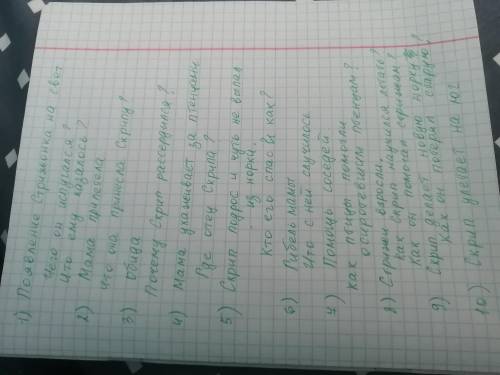 1) Появление Стрижонка на свет
Чего он испугался?
Что ему казалось?
2) Мама прилетела
Что она принесла Скрипу?
3) Обида
Почему Скрип рассердился?
4) Мама ухаживает за птенцами
Где отец Скрипа?
5) Скрип подрос и чуть не выпал
из норки.
Кто его спас и как?
6) Гибель мамы
Что с ней случилось
7) Помощь соседей
как птицы помогли
осиротевшим птенцам?
8) Стрижи выросли.
как Скрип научился летать?
Как он помогал стрижатам?
9) Скрип делает новую норку?
Как он потерял старую?
10) Скрип улетает на юг